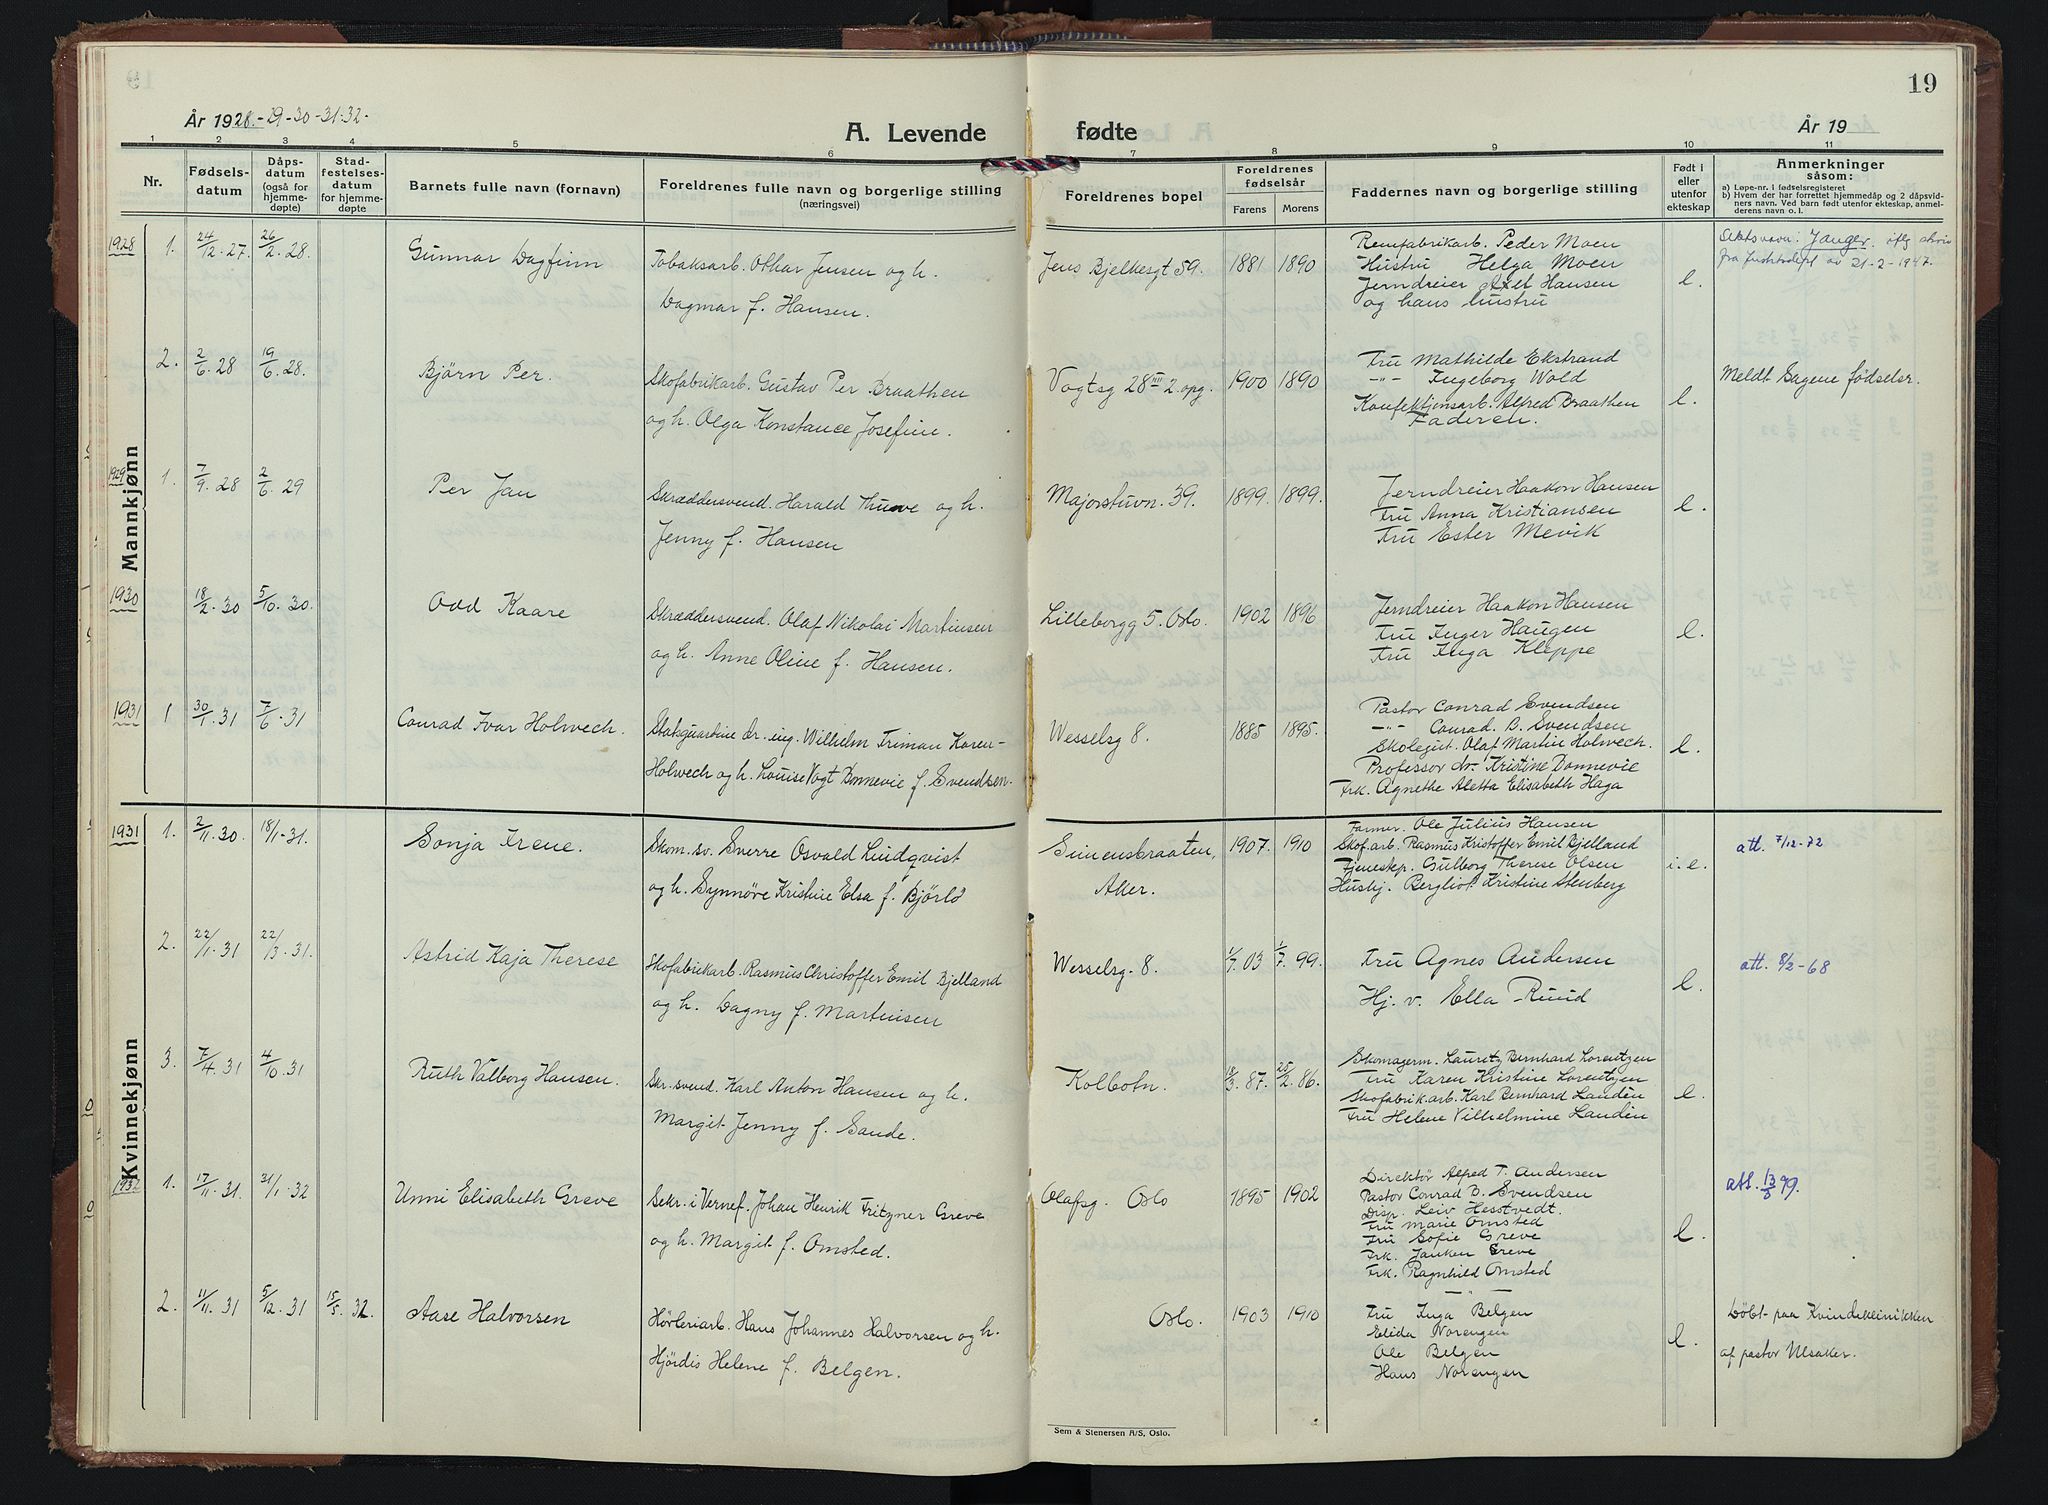 19
År 1928-29-30-31-32.
A. Levende fødte
År 19
1 2 3 4 5 6 7 8 9 10 11
Nr.
Fødsels-
datum
Dåps-
datum
(også for
hjemme-
døpte)
Stad-
festelses-
datum
for hjemme-
døpte
Barnets fulle navn (fornavn)
Foreldrenes fulle navn og borgerlige stilling
(næringsvei)
Foreldrenes bopel
Foreldrenes
fødselsår
Farens Morens
Faddernes navn og borgerlige stilling
Født i
eller
utenfor
ekteskap
Anmerkninger
såsom:
a) Løpe-nr. i fødselsregisteret
b) Hvem der har forrettet hjemmedåp og 2 dåpsvid-
ners navn. Ved barn født utenfor ekteskap, anmel-
derens navn o. l.
Mannkjønn
1928 1. 24/12. 27. 26/2. 28. Gunnar Dagfinn
Tobaksarb. Othar Jensen og h.
Dagmar f. Hansen.
Jens Bjelkesgt 59. 1881 1890
Remfabrikarb. Peder Moen
Hustru Helga Moen
Jerndreier Axel Hansen
og hans hustru
l.
Slektsnavn: Janger, iflg skriv
fra justisdept av 21-2-1947.
2. 2/6. 28 19/6. 28. Bjørn Per.
Skofabrikarb. Gustav Per Braathen
og h. Olga Konstance Josefine.
Vogtsg 28 III 2. opg. 1900 1890
Fru Mathilde Ekstrand
-"- Ingeborg Wold
Konfektjonsarb. Alfred Braathen
Faderen.
l.
Meldt Sagene fødselsr.
1929 1. 7/9. 28 2/6. 29 Per Jan
Skræddersvend. Harald Thuve og h.
Jenny f. Hansen
Majorstuvn. 39. 1899. 1899.
Jerndreier Haakon Hansen
Fru Anna Kristiansen
Fru Ester Mevik
l.
1930 18/2. 30 5/10. 30. Odd Kaare
Skræddersvend. Olaf Nikolai Martinsen
og h. Anne Oline f. Hansen.
Lilleborgg 5. Oslo. 1902 1896
Jerndreier Haakon Hansen
Fru Inger Haugen
Fru Inga Kleppe
l.
1931 1 30/1. 31 7/6. 31 Conrad Ivar Holwech.
Statsguartine dr. ing. Wilhelm Friman Koren-
Holwech og h. Louise Vogt Bonnevie f. Svendsen.
Wesselsg 8. 1885 1895.
Pastor Conrad Svendsen
-"- Conrad. B. Svendsen
Skolegut. Olaf Martin Holwech.
Professor dr. Kristine Bonnevie
Frk. Agnethe Aletta Elisabeth Haga
l.
Kvinnekjønn
1931 1. 2/11. 30. 18/1-31. Sonja Irene.
Skom. sv. Sverre Osvald Lindqvist
og h. Synnøve Kristine Elsa f. Bjørlo
Simensbraaten,
Aker.
1907. 1910
Farmer. Ole Julius Hansen
Skof.arb. Rasmus Kristoffer Emil Bjelland
Tjeneskp. Gulborg Therese Olsen
Hushj. Bergliot Kristine Stenberg
i. e.
att. 7/12-72
2. 22/1. 31 22/3. 31 Astrid Kaja Therese
Skofabrikarb. Rasmus Christoffer Emil Bjelland
og h. Dagny f. Martinsen
Wesselsg. 8. 1/7. 03 1/7. 99.
Fru Agnes Andersen
Hj. v. Ella Ruud
l.
att. 8/2-68
3. 7/4. 31 4/10. 31 Ruth Valborg Hansen.
Skr. svend. Karl Anton Hansen og h.
Margit Jenny f. Sande.
Kolbotn. 18/3. 87. 25/2. 86.
Skomagerm. Lauretz Bernhard Lorentzen
Fru Karen Kristine Lorentzen
Skofabrik.arb. Karl Bernhard Landén
Fru Helene Vilhelmine Landén
l.
1932 1. 17/11. 31. 31/1. 32 Unni Elisabeth Greve
Sekr. i Vernef. Johan Henrik Fritzner Greve
og h. Margit f. Omsted.
Olafsg. Oslo 1895 1902
Direktør Alfred T. Andersen
Pastor Conrad B. Svendsen
Disp. Leiv Hesstvedt.
Fru Marie Omsted
Fru Sofie Greve
Frk. Janken Greve
Frk. Ragnhild Omsted
l.
att. 13/8 99.
2. 11/11. 31 5/12. 31 15/5. 32. Aase Halvorsen
Høvleriarb. Hans Johannes Halvorsen og h.
Hjørdis Helene f. Belgen.
Oslo. 1903 1910
Fru Inga Belgen
Elida Norengen
Ole Belgen
Hans Norengen
l.
Døbt paa Kvindeklinikken
af pastor Ulsaker.
Sem & Stenersen A/S, Oslo.